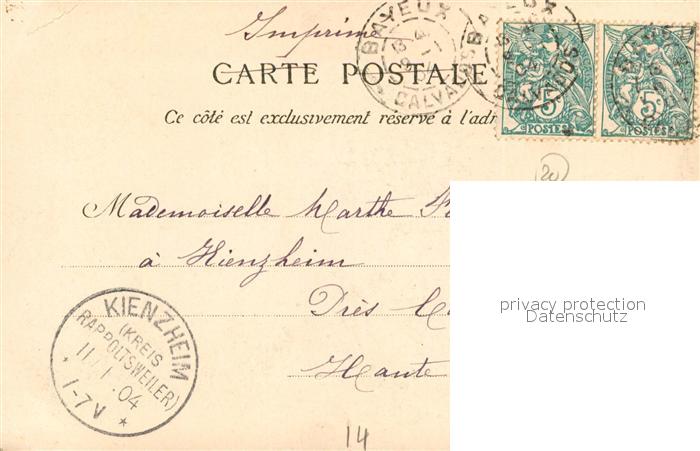 Imprimé
CARTE POSTALE
Ce côté est exclusivement réservé à l'adr
BAYEUX
CALVADOS
BAYEUX
5c
POSTES
5c
POSTES
20
Mademoiselle Marthe
à Kienzheim
Près
Haute
privacy protection
Datenschutz
KIENZHEIM
(KREIS
RAPPOLTSWEILER)
11/1.04
1-7V
*
14